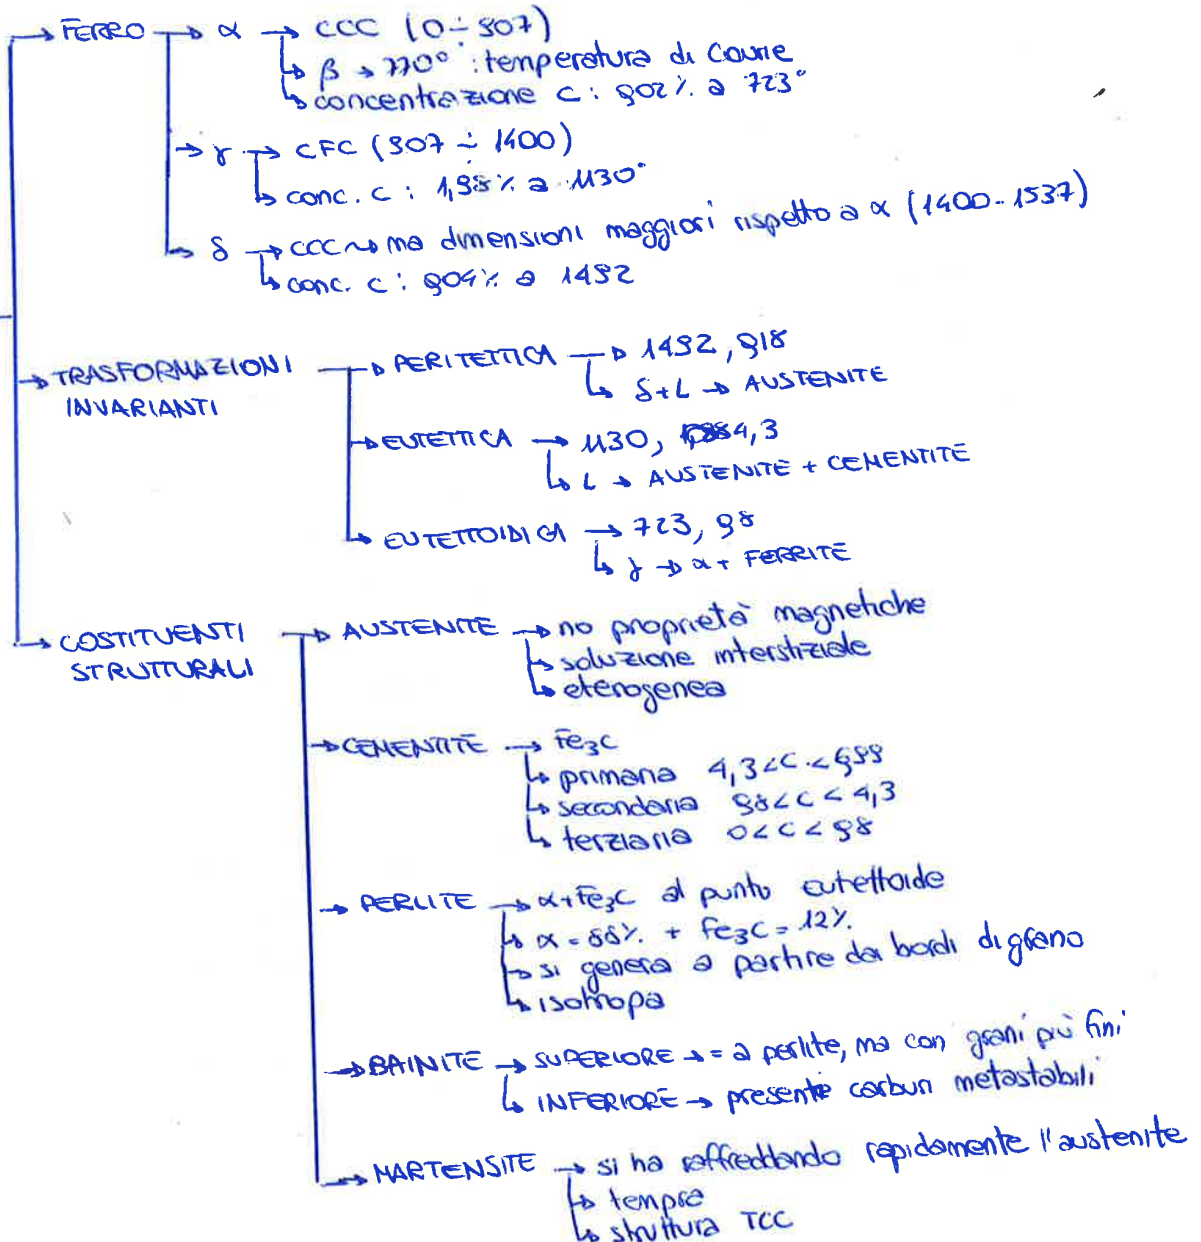 → FERRO → α → CCC (0÷907)
↳ β → 770° : temperatura di Courie
↳ concentrazione C : 0,02% a 723°
→ γ → CFC (907 ÷ 1400)
↳ conc. C : 1,98% a 1130°
↳ δ → CCC ↝ ma dimensioni maggiori rispetto a α (1400-1537)
↳ conc. C : 0,04% a 1492
→ TRASFORMAZIONI INVARIANTI → PERITETTICA → 1492, 0,18
↳ δ+L → AUSTENITE
→ EUTETTICA → 1130, 4,3
↳ L → AUSTENITE + CEMENTITE
→ EUTETTOIDICA → 723, 0,8
↳ γ → α + FERRITE
→ COSTITUENTI STRUTTURALI → AUSTENITE → no proprietà magnetiche
↳ soluzione interstiziale
↳ eterogenea
→ CEMENTITE → Fe₃C
↳ primaria 4,3<C<6,99
↳ secondaria 0,8<C<4,3
↳ terziaria 0<C<0,8
→ PERLITE → α+Fe₃C al punto eutettoide
↳ α = 88% + Fe₃C = 12%
↳ si genera a partire dai bordi di grano
↳ isotropa
→ BAINITE → SUPERIORE → = a perlite, ma con grani più fini
↳ INFERIORE → presente carburi metastabili
→ MARTENSITE → si ha raffreddando rapidamente l'austenite
↳ tempra
↳ struttura TCC